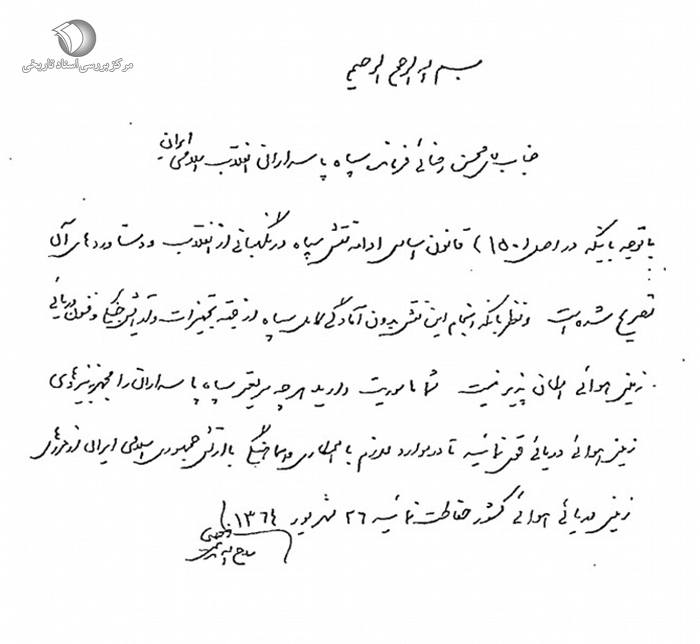 مرکز بررسی اسناد تاریخی
بسم الله الرحمن الرحیم
جناب آقای محسن رضائی فرمانده سپاه پاسداران انقلاب اسلامی ایران
با توجه باینکه در اصل (۱۵۰) قانون اساسی ادامه نقش سپاه در نگهبانی از انقلاب و دستاوردهای آن
تصریح شده است و نظر باینکه انجام این نقش بدون آمادگی کامل سپاه از جهت تجهیزات و آرایش جنگی و فنون دریائی
زمینی هوائی امکان پذیر نیست شما ماموریت دارید هر چه سریعتر سپاه پاسداران را مجهز به نیروهای
زمینی هوائی دریائی قوی نمائید تا در موارد لازم با همکاری و هماهنگی با ارتش جمهوری اسلامی ایران از مرزهای
زمینی دریائی هوائی کشور حفاظت نمائید ۲۶ شهریور ۱۳۶۴
روح الله الموسوی الخمینی